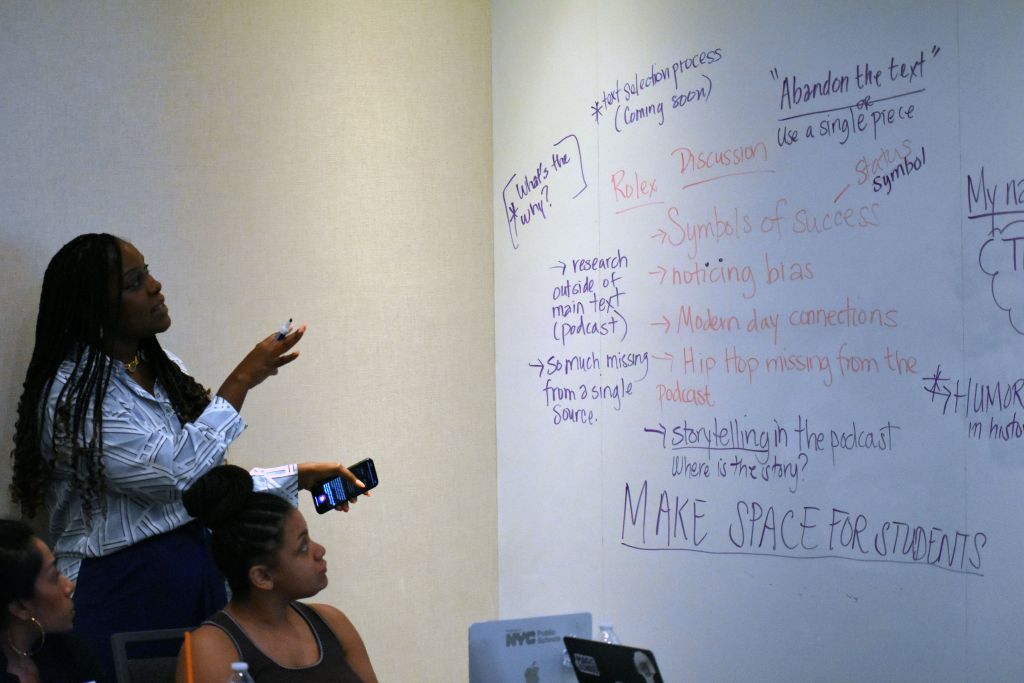 *text selection process
(Coming soon)
"Abandon the text"
or
Use a single piece
*What's the
why?
Rolex Discussion
status
symbol
→Symbols of success
→noticing bias
→Modern day connections
→Hip Hop missing from the
podcast
→storytelling in the podcast
Where is the story?
→research
outside of
main text
(podcast)
→So much missing
from a single
source.
MAKE SPACE FOR STUDENTS
My
*→HUMOR
in
NYC Public
Schools